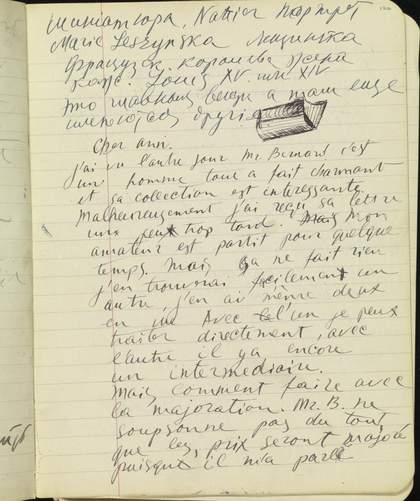 миниатюра, Nattier портрет
Marie Leszynska Лещинска
француз. королева жена
Louis XV или XIV
это главная вещь а там еще
другие
Cher ami.
j'ai vu l'autre jour Mr. Bernard c'est
un homme tout a fait charmant
et sa collection est interessante
Malheureusement j'ai reçu sa lettre
un peu trop tard. Mais mon
amateur est partit pour quelque
temps. Mais ça ne fait rien
j'en trouverai facilement un
autre, j'en ai même deux
en vue Avec l'un je peux
traiter directement, avec
l'autre il ya encore
un intermediaire.
Mais comment faire avec
la majoration. Mr. B. ne
soupsonne pas du tout
que les prix seront majoré
puisque il m'a parlé